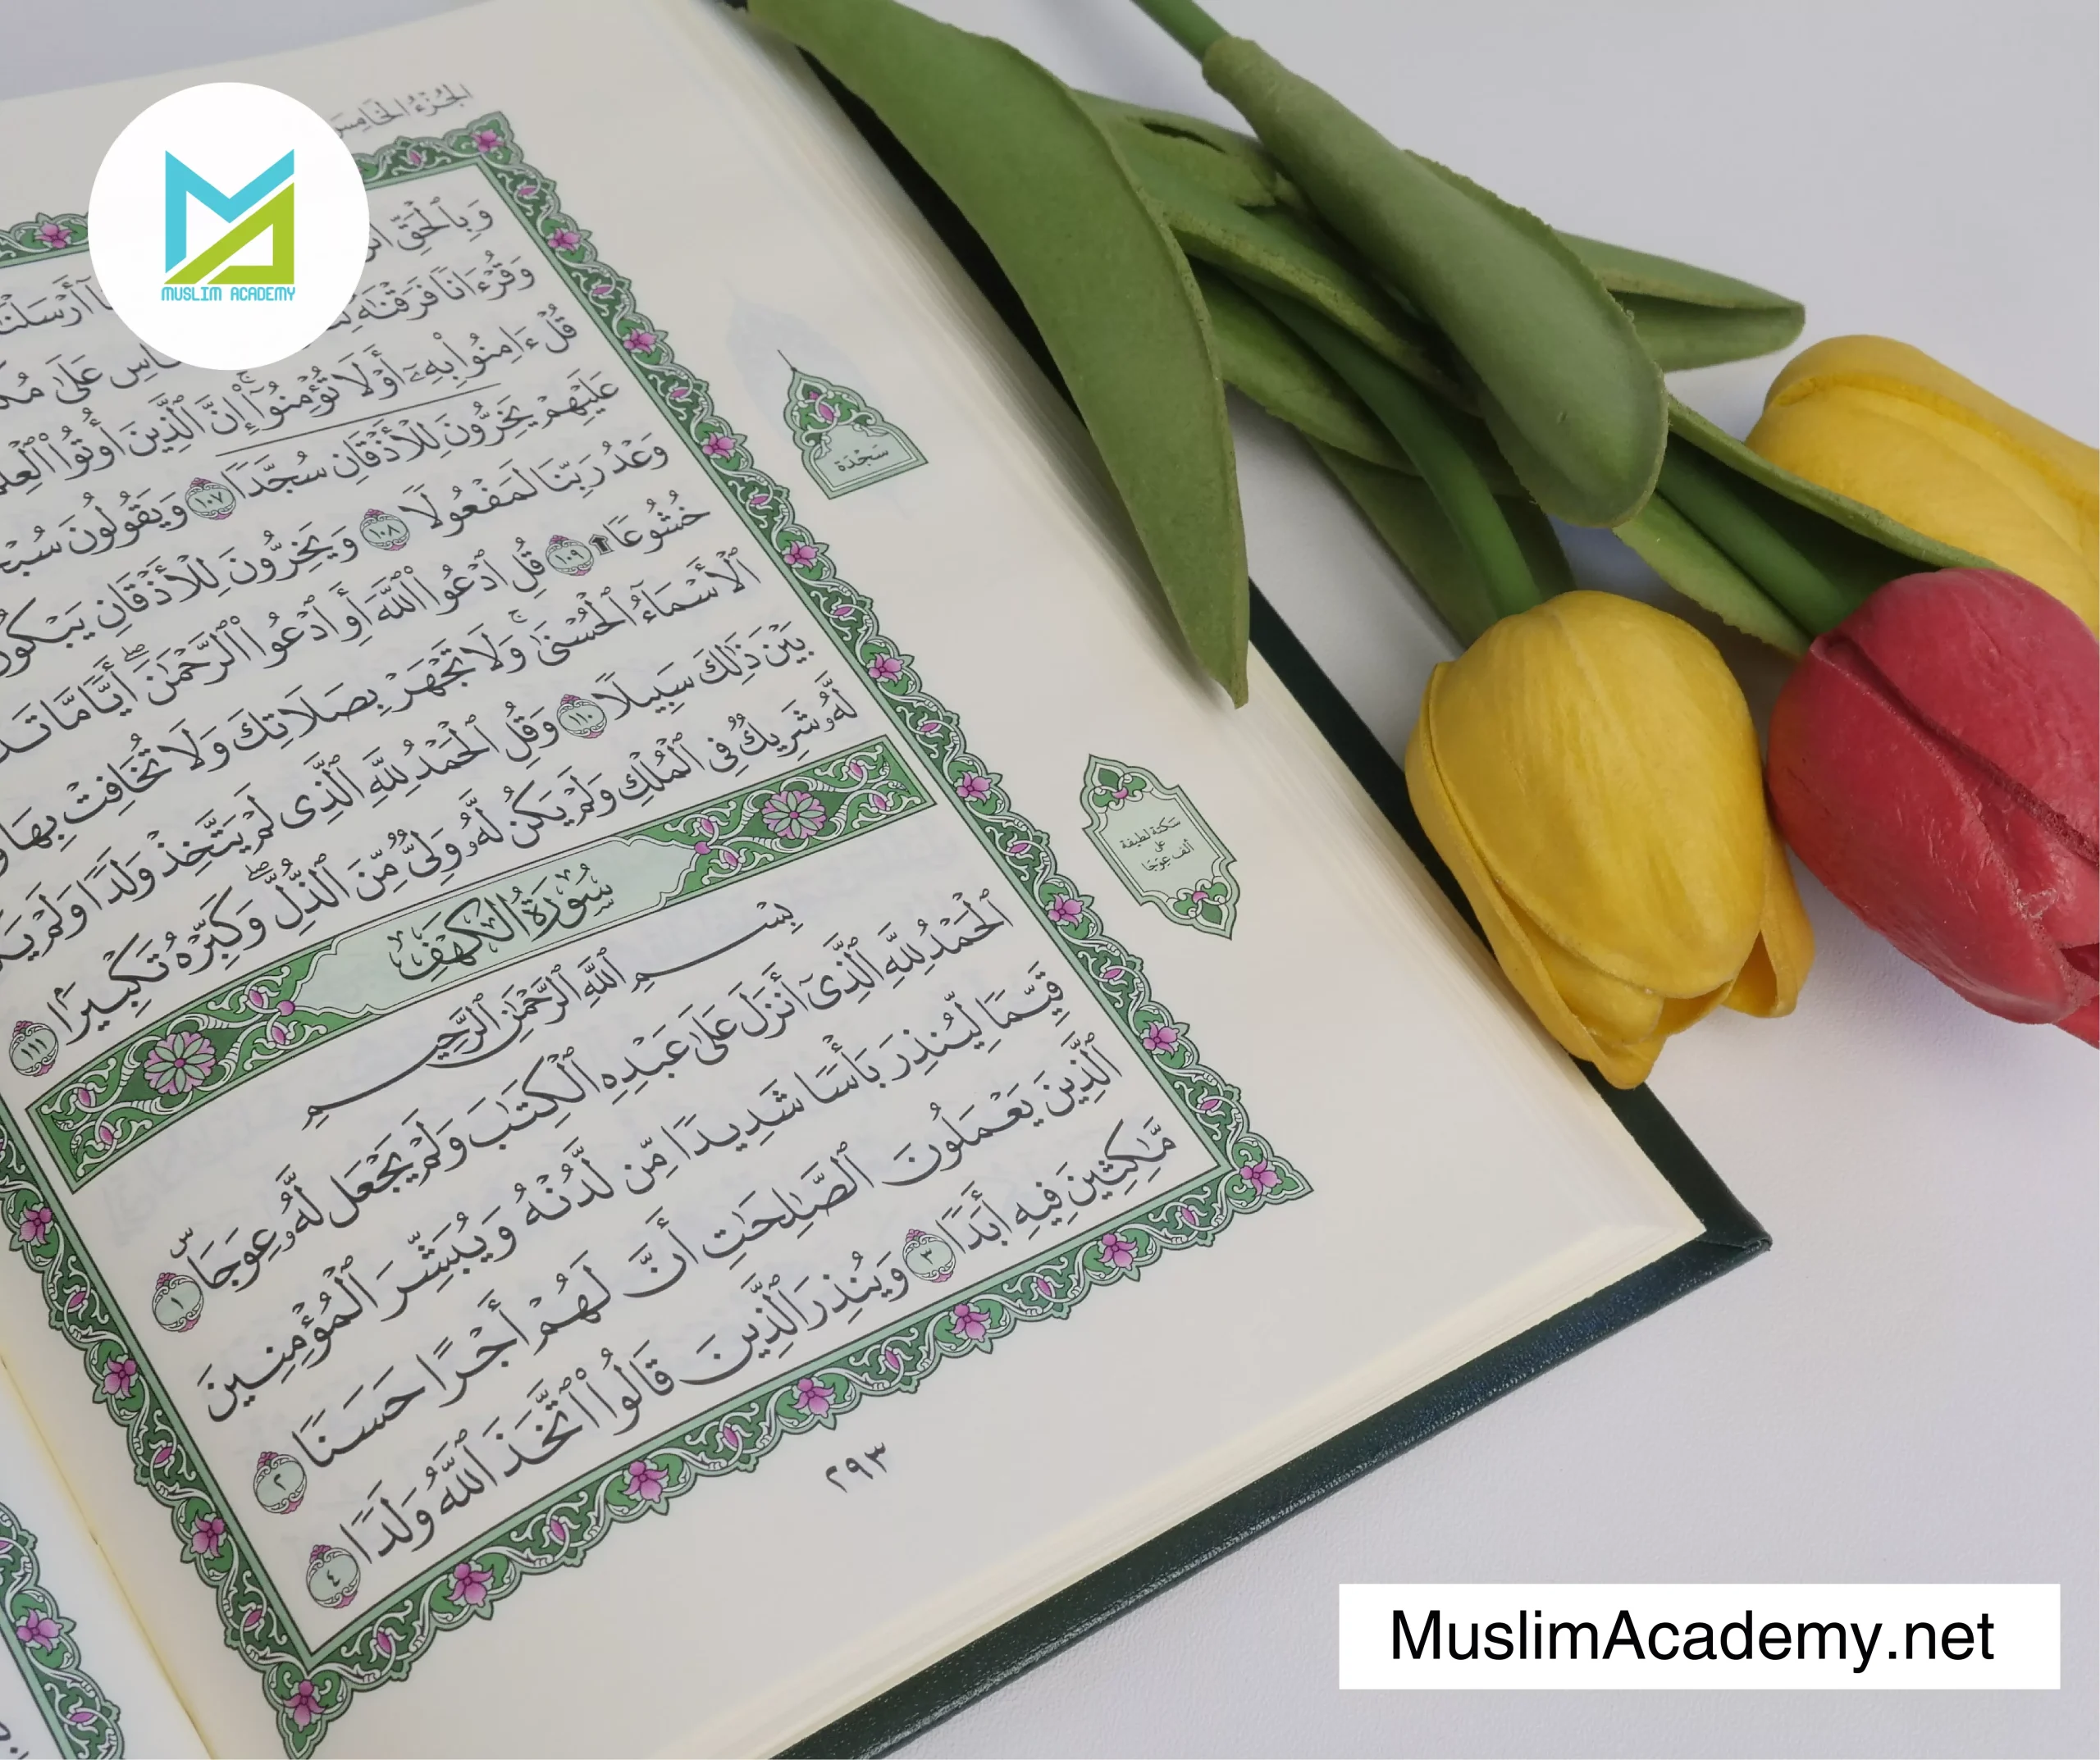 الجُزْءُ الخَامِسَ
MUSLIM ACADEMY
وَبِٱلْحَقِّ
أَرْسَلْنَ
وَقُرْءَانًا فَرَقْنَٰهُ
عَلَىٰ مُ
قُلْ ءَامِنُوا۟ بِهِۦٓ أَوْ لَا تُؤْمِنُوٓا۟ ۚ إِنَّ ٱلَّذِينَ أُوتُوا۟ ٱلْعِلْ
عَلَيْهِمْ يَخِرُّونَ لِلْأَذْقَانِ سُجَّدًا ١٠٧ وَيَقُولُونَ سُبْ
وَعْدُ رَبِّنَا لَمَفْعُولًا ١٠٨ وَيَخِرُّونَ لِلْأَذْقَانِ يَبْكُو
خُشُوعًا ١٠٩ قُلِ ٱدْعُوا۟ ٱللَّهَ أَوِ ٱدْعُوا۟ ٱلرَّحْمَٰنَ ۖ أَيًّا مَّا تَد
ٱلْأَسْمَآءُ ٱلْحُسْنَىٰ ۚ وَلَا تَجْهَرْ بِصَلَاتِكَ وَلَا تُخَافِتْ بِهَا وَ
بَيْنَ ذَٰلِكَ سَبِيلًا ١١٠ وَقُلِ ٱلْحَمْدُ لِلَّهِ ٱلَّذِى لَمْ يَتَّخِذْ وَلَدًا وَلَمْ يَك
لَّهُۥ شَرِيكٌ فِى ٱلْمُلْكِ وَلَمْ يَكُن لَّهُۥ وَلِىٌّ مِّنَ ٱلذُّلِّ ۖ وَكَبِّرْهُ تَكْبِيرًۢا ١١١
سَجْدَة
سُورَةُ الكَهْفِ
بِسْمِ ٱللَّهِ ٱلرَّحْمَٰنِ ٱلرَّحِيمِ
ٱلْحَمْدُ لِلَّهِ ٱلَّذِىٓ أَنزَلَ عَلَىٰ عَبْدِهِ ٱلْكِتَٰبَ وَلَمْ يَجْعَل لَّهُۥ عِوَجَا ۜ ١
قَيِّمًا لِّيُنذِرَ بَأْسًا شَدِيدًا مِّن لَّدُنْهُ وَيُبَشِّرَ ٱلْمُؤْمِنِينَ
ٱلَّذِينَ يَعْمَلُونَ ٱلصَّٰلِحَٰتِ أَنَّ لَهُمْ أَجْرًا حَسَنًا ٢
مَّٰكِثِينَ فِيهِ أَبَدًا ٣ وَيُنذِرَ ٱلَّذِينَ قَالُوا۟ ٱتَّخَذَ ٱللَّهُ وَلَدًا ٤
سَكتة لطيفة
على
ألف عِوَجَا
٢٩٣
MuslimAcademy.net